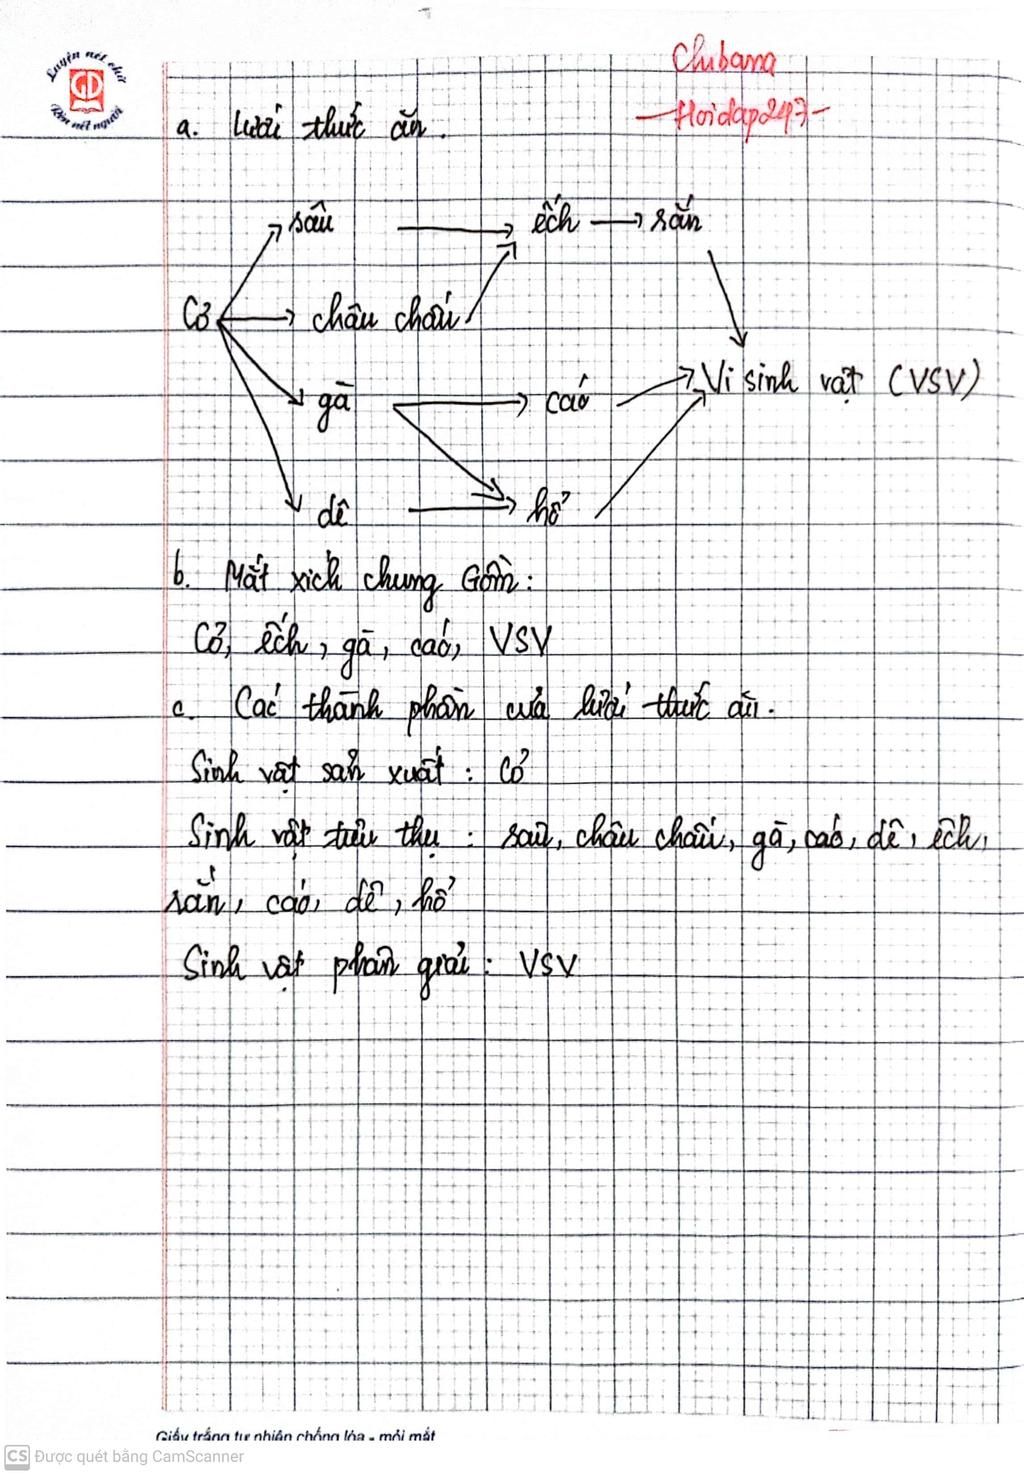 Luyện nét chữ
GD
Rèn nết người
Chubana
-Hoidap247-
a. Lưới thức ăn.
sâu ếch rắn
Cỏ châu chấu
gà cáo Vi sinh vật (VSV)
dê hổ
b. Mắt xích chung Gồm:
Cỏ, ếch, gà, cáo, VSV
c. Các thành phần của lưới thức ăn.
Sinh vật sản xuất: Cỏ
Sinh vật tiêu thụ: sâu, châu chấu, gà, cáo, dê, ếch,
rắn, cáo, dê, hổ
Sinh vật phân giải: VSV
Giấy trắng tự nhiên chống lóa - mỏi mắt
CS Được quét bằng CamScanner